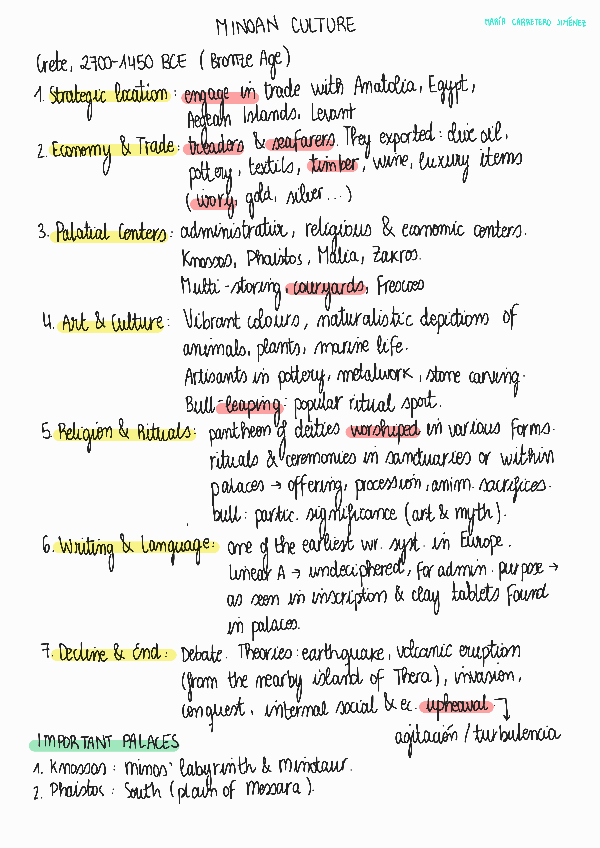 MINOAN CULTURE
MARÍA CARRETERO JIMÉNEZ
Crete, 2700-1450 BCE (Bronze Age)
1. Strategic location: engage in trade with Anatolia, Egypt,
Aegean Islands, Levant
2. Economy & Trade: treaders & seafarers. They exported: olive oil,
pottery, textils, timber, wine, luxury items
(ivory, gold, silver...)
3. Palatial Centers: administrative, religious & economic centers.
Knossos, Phaistos, Malia, Zakros.
Multi-storing, couryards, Frescoes
4. Art & Culture: Vibrant colours, naturalistic depictions of
animals, plants, marine life.
Artisants in pottery, metalwork, stone carving.
Bull-leaping: popular ritual sport.
5. Religion & Rituals: pantheon of deities worshiped in various forms.
rituals & ceremonies in sanctuaries or within
palaces → offering, procession, anim. sacrifices.
bull: partic. significance (art & myth).
6. Writing & Language: one of the earliest wr. syst. in Europe.
Linear A → undeciphered, for admin. purpose →
as seen in inscription & clay tablets found
in palaces.
7. Decline & End: Debate. Theories: earthquake, volcanic eruption
(from the nearby island of Thera), invasion,
conquest, internal social & ec. upheaval
agitación / turbulencia
IMPORTANT PALACES
1. Knossos: Minos' labyrinth & Minotaur.
2. Phaistos: South (plain of Messara).